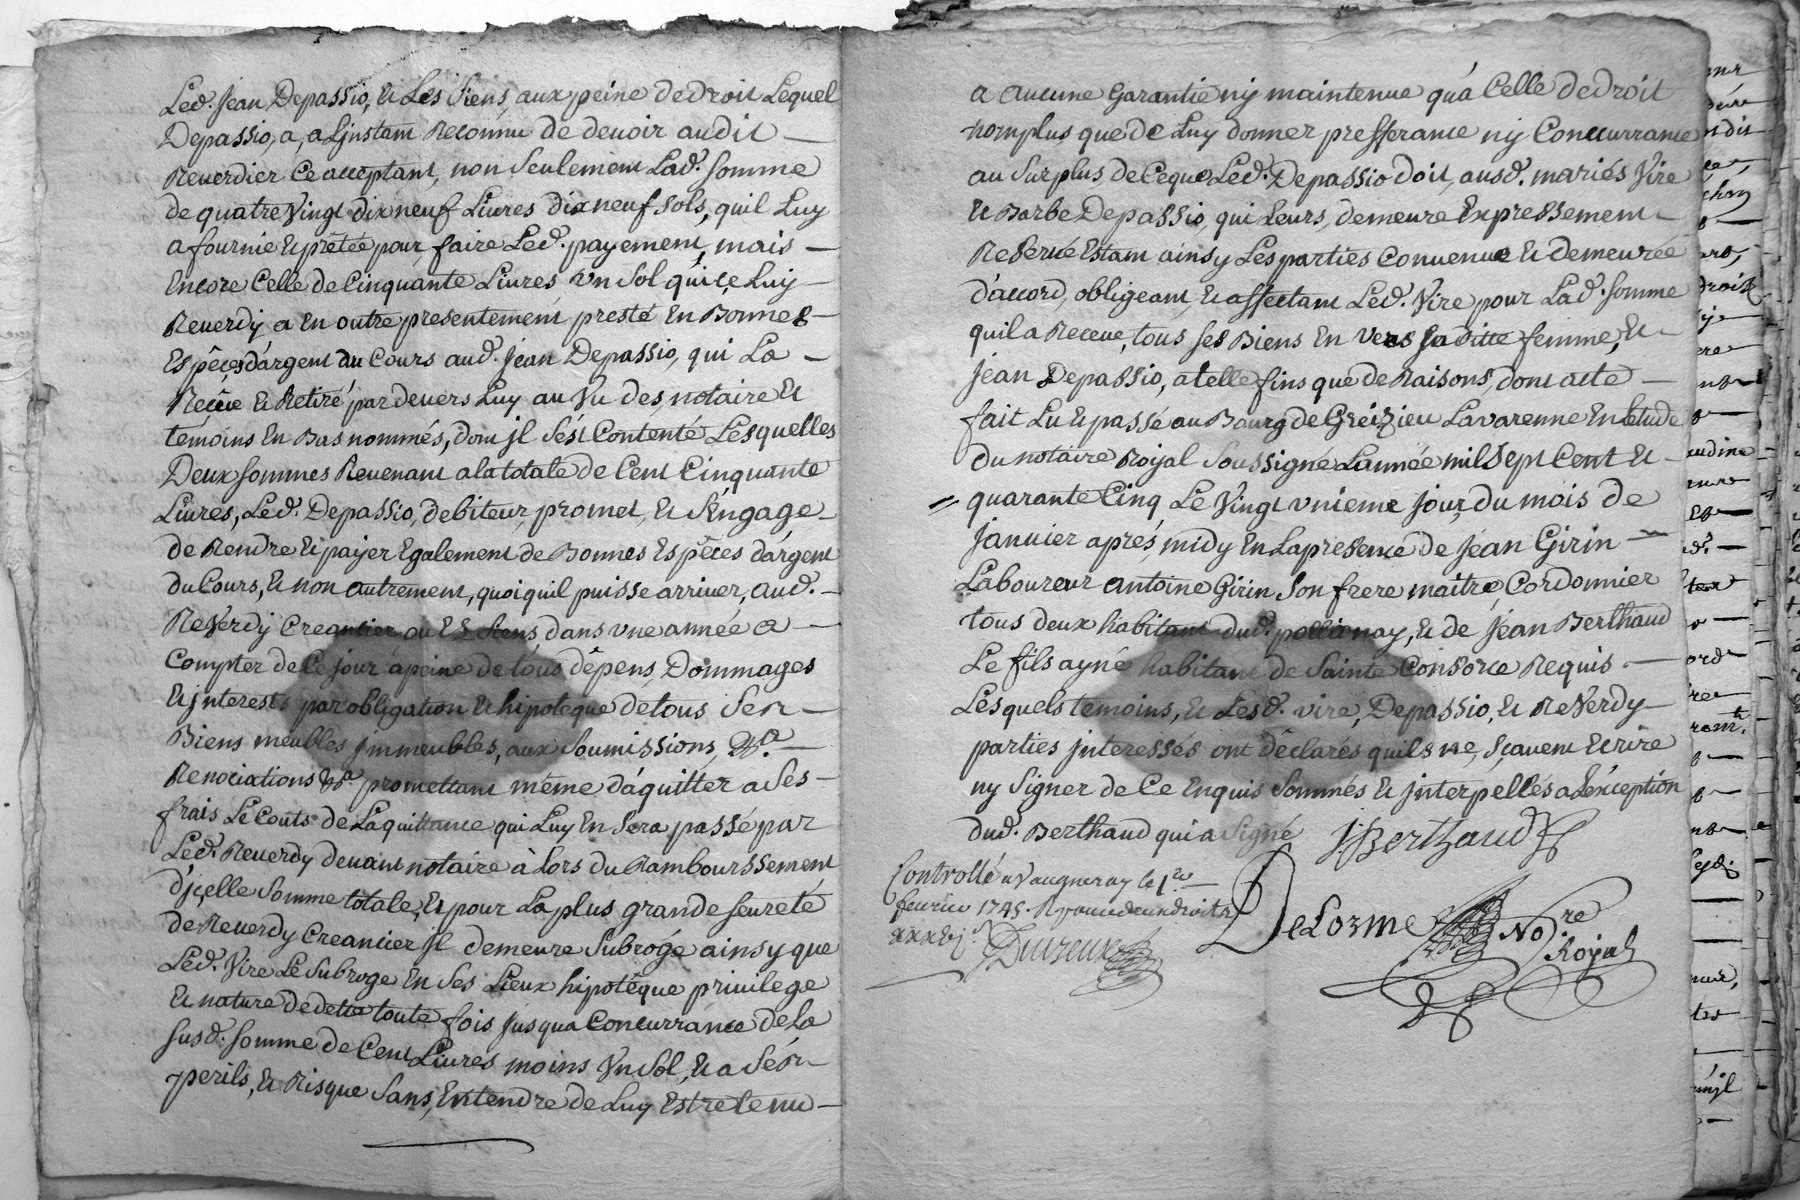 Led. Jean Depassio, et Les Siens, aux peine de droit Lequel
Depassio, a, aLjnstant Reconnu de devoir audit —
Reverdier Ce acceptant, non Seulement Lad. Somme
de quatre Vingt dix neuf Livres dix neuf Sols, quil Luy
a fournie et prétée pour faire Led. payement, mais —
Encore Celle de Cinquante Livres Vn Sol que Ce Luy —
Reverdy a En outre presentement presté En Bonnes —
Espéces d'argent du Cours aud. Jean Depassio, qui La —
Reçüe et Retiré par devers Luy au Vu des notaire et
témoins En Bas nommés, dont jl S'est Contenté Lesquelles
Deux Sommes Revenant a la totale de Cent Cinquante
Livres, Led. Depassio, debiteur, promet, et S'engage —
de Rendre et payer Egalement de Bonnes Espéces d'argent
du Cours, et non autrement, quoi quil puisse arriver, aud. —
Reverdy Creantier ou Es Siens dans vne année a —
Compter de Ce jour a peine de tous dépens, Dommages
et jnterests par obligation et hipoteque de tous Ses —
Biens meubles jmmeubles, aux Soumissions, &a —
Renociations &a promettant méme d'aquitter a Ses —
frais Le Couts de La quittance qui Luy En Sera passé par
Led. Reverdy devant notaire à Lors du Rambourssement
d'jcelle Somme totale, et pour La plus grande Seureté
de Reverdy Creantier jl demeure Subrogé ainsy que
Led. Vire Le Subroge En Ses Lieux hipotéque privilege
et nature de dette toute fois jusqua Concurrance de La
Susd. Somme de Cent Livres moins Vn Sol, et a Ses —
perils, et Risque Sans, Entendre de Luy Estre tenu —
a aucune Garantie ny maintenue qu'á Celle de droit
nom plus que de Luy donner presferance ny Concurrance
au Surplus de Ce que Led. Depassio doit, ausd. mariés Vire
et Barbe Depassio, qui Leurs, demeure Expressement —
Reservé Estant ainsy Les parties Convenue et demeurée
d'accord, obligeant, et affectant Led. Vire pour Lad. Somme
quil a Receue, tous Ses Biens En Vers Sa ditte femme, et —
Jean Depassio, a telle fins que de Raisons, dont acte —
fait Lu et passé au Bourg de Greizieu Lavarenne En Letude
du notaire Royal Soussigné L'année mil Sept Cent et —
quarante Cinq Le Vingt vnieme jour du mois de
Janvier aprés midy En La presence de Jean Girin —
Laboureur antoine Girin Son frere maitre Cordonnier
tous deux habitant dud. pollionay, et de Jean Berthaud
Le fils ayné habitant de Sainte Consorce Requis. —
Lesquels temoins, et Lesd. vire, Depassio, et Reverdy —
parties jnteressés ont déclarés quils ne, Sçavent Ecrire
ny Signer de Ce Enquis Sommés et jnterpellés a L'exception
dud. Berthaud qui a Signé JBerthaud
Controllé a Vaugneray le 1er
fevrier 1745.
DeLorme No.re
Royal